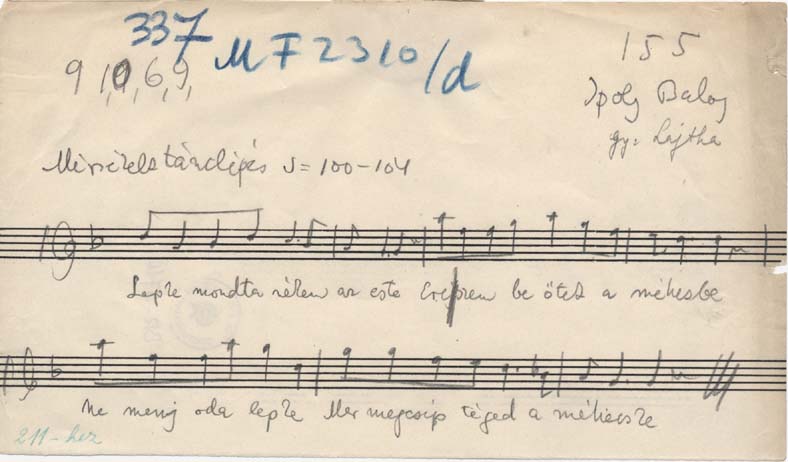 337
MF 2310/d
155
9 10, 6, 9,
Ipoly Balog
gy. Lajtha
Mérsékelt tánclépés ♩= 100-104
Lepke mondta az este be a méhesbe
Ne menj oda lepke Mer megcsíp téged a méhecske
211-hez